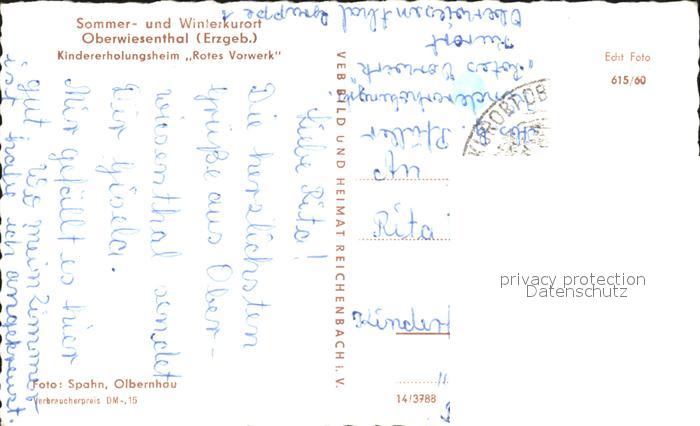 Sommer- und Winterkurort
Oberwiesenthal (Erzgeb.)
Kindererholungsheim „Rotes Vorwerk"
Liebe Rita!
Die herzlichsten
Grüße aus Ober-
wiesenthal sendet
Dir Gisela.
Mir gefällt es hier
gut. Wo mein Zimmer
ist habe ich angekreuzt.
Foto: Spahn, Olbernhau
Verbraucherpreis DM -,15
VEB BILD UND HEIMAT REICHENBACH i. V.
14/3788
Echt Foto
615/60
Kindererholungsh.
"Rotes Vorwerk"
Kurort
Oberwiesenthal Gruppe 1
An
Rita
privacy protection
Datenschutz